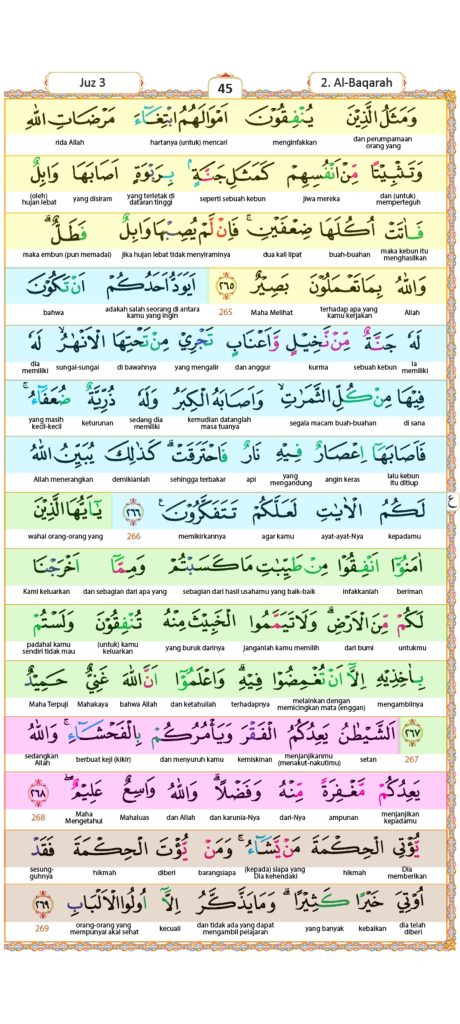 Juz 3
45
2. Al-Baqarah
وَمَثَلُ الَّذِيْنَ يُنْفِقُوْنَ اَمْوَالَهُمُ ابْتِغَاۤءَ مَرْضَاتِ اللّٰهِ
dan perumpamaan orang yang menginfakkan hartanya (untuk) mencari rida Allah
وَتَثْبِيْتًا مِّنْ اَنْفُسِهِمْ كَمَثَلِ جَنَّةٍۢ بِرَبْوَةٍ اَصَابَهَا وَابِلٌ
dan (untuk) memperteguh jiwa mereka seperti sebuah kebun yang terletak di dataran tinggi yang disiram (oleh) hujan lebat
فَاٰتَتْ اُكُلَهَا ضِعْفَيْنِۚ فَاِنْ لَّمْ يُصِبْهَا وَابِلٌ فَطَلٌّۗ
maka kebun itu menghasilkan buah-buahan dua kali lipat jika hujan lebat tidak menyiraminya maka embun (pun memadai)
وَاللّٰهُ بِمَا تَعْمَلُوْنَ بَصِيْرٌ ٢٦٥ اَيَوَدُّ اَحَدُكُمْ اَنْ تَكُوْنَ
Allah terhadap apa yang kamu kerjakan Maha Melihat 265 adakah salah seorang di antara kamu yang ingin bahwa
لَهٗ جَنَّةٌ مِّنْ نَّخِيْلٍ وَّاَعْنَابٍ تَجْرِيْ مِنْ تَحْتِهَا الْاَنْهٰرُۙ لَهٗ
Ia memiliki sebuah kebun kurma dan anggur yang mengalir di bawahnya sungai-sungai dia memiliki
فِيْهَا مِنْ كُلِّ الثَّمَرٰتِۙ وَاَصَابَهُ الْكِبَرُ وَلَهٗ ذُرِّيَّةٌ ضُعَفَاۤءُۚ
di sana segala macam buah-buahan kemudian datanglah masa tuanya sedang dia memiliki keturunan yang masih kecil-kecil
فَاَصَابَهَآ اِعْصَارٌ فِيْهِ نَارٌ فَاحْتَرَقَتْۗ كَذٰلِكَ يُبَيِّنُ اللّٰهُ
lalu kebun itu ditiup angin keras yang mengandung api sehingga terbakar demikianlah Allah menerangkan
لَكُمُ الْاٰيٰتِ لَعَلَّكُمْ تَتَفَكَّرُوْنَۚ ٢٦٦ يٰٓاَيُّهَا الَّذِيْنَ
kepadamu ayat-ayat-Nya agar kamu memikirkannya 266 wahai orang-orang yang
ع
اٰمَنُوْٓا اَنْفِقُوْا مِنْ طَيِّبٰتِ مَا كَسَبْتُمْ وَمِمَّآ اَخْرَجْنَا
beriman infakkanlah sebagian dari hasil usahamu yang baik-baik dan sebagian dari apa yang Kami keluarkan
لَكُمْ مِّنَ الْاَرْضِۗ وَلَا تَيَمَّمُوا الْخَبِيْثَ مِنْهُ تُنْفِقُوْنَ وَلَسْتُمْ
untukmu dari bumi janganlah kamu memilih yang buruk darinya (untuk) kamu keluarkan padahal kamu sendiri tidak mau
بِاٰخِذِيْهِ اِلَّآ اَنْ تُغْمِضُوْا فِيْهِۗ وَاعْلَمُوْٓا اَنَّ اللّٰهَ غَنِيٌّ حَمِيْدٌ
mengambilnya melainkan dengan memicingkan mata (enggan) terhadapnya dan ketahuilah bahwa Allah Mahakaya Maha Terpuji
٢٦٧ اَلشَّيْطٰنُ يَعِدُكُمُ الْفَقْرَ وَيَأْمُرُكُمْ بِالْفَحْشَاۤءِۚ وَاللّٰهُ
267 setan menjanjikanmu (menakut-nakutimu) kemiskinan dan menyuruh kamu berbuat keji (kikir) sedangkan Allah
يَعِدُكُمْ مَّغْفِرَةً مِّنْهُ وَفَضْلًاۗ وَاللّٰهُ وَاسِعٌ عَلِيْمٌۖ ٢٦٨
menjanjikan kepadamu ampunan dari-Nya dan karunia-Nya dan Allah Mahaluas Maha Mengetahui 268
يُّؤْتِى الْحِكْمَةَ مَنْ يَّشَاۤءُۚ وَمَنْ يُّؤْتَ الْحِكْمَةَ فَقَدْ
Dia memberikan hikmah (kepada) siapa yang Dia kehendaki barangsiapa diberi hikmah sesung-guhnya
اُوْتِيَ خَيْرًا كَثِيْرًاۗ وَمَا يَذَّكَّرُ اِلَّآ اُولُوا الْاَلْبَابِ ٢٦٩
dia telah diberi kebaikan yang banyak dan tidak ada yang dapat mengambil pelajaran kecuali orang-orang yang mempunyai akal sehat 269